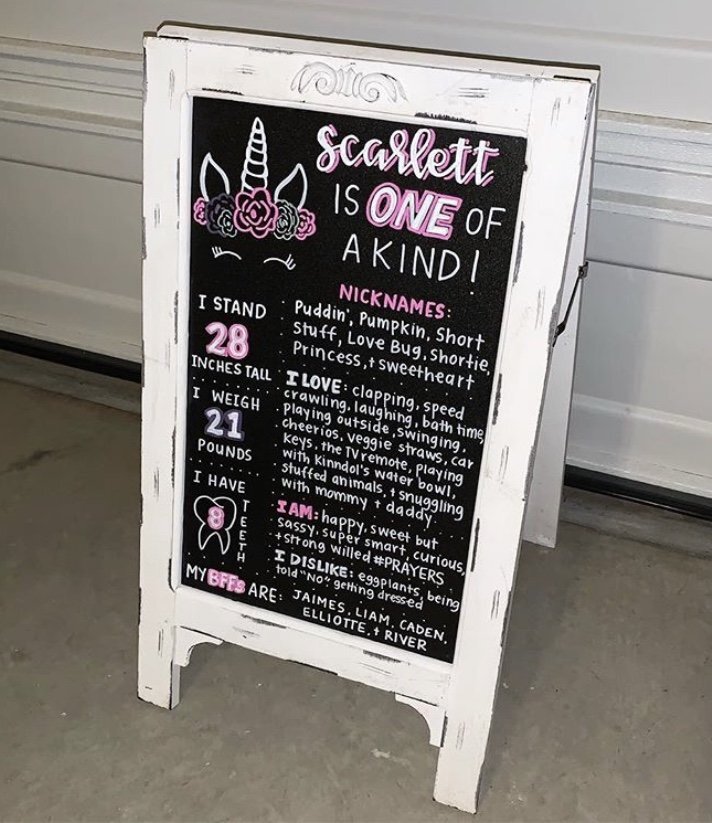 Scarlett
IS ONE OF
A KIND!
I STAND
28
INCHES TALL
I WEIGH
21
POUNDS
I HAVE
8
TEETH
NICKNAMES:
Puddin', Pumpkin, Short
Stuff, Love Bug, Shortie,
Princess, + sweetheart
I LOVE: clapping, speed
crawling, laughing, bath time,
playing outside, swinging,
cheerios, veggie straws, car
keys, the TV remote, playing
with Kinndol's water bowl,
stuffed animals, + snuggling
with mommy + daddy
I AM: happy, sweet but
sassy, super smart, curious,
+ strong willed #PRAYERS
I DISLIKE: eggplants, being
told "NO", getting dressed
MY BFFs ARE: JAIMES, LIAM, CADEN,
ELLIOTTE, + RIVER